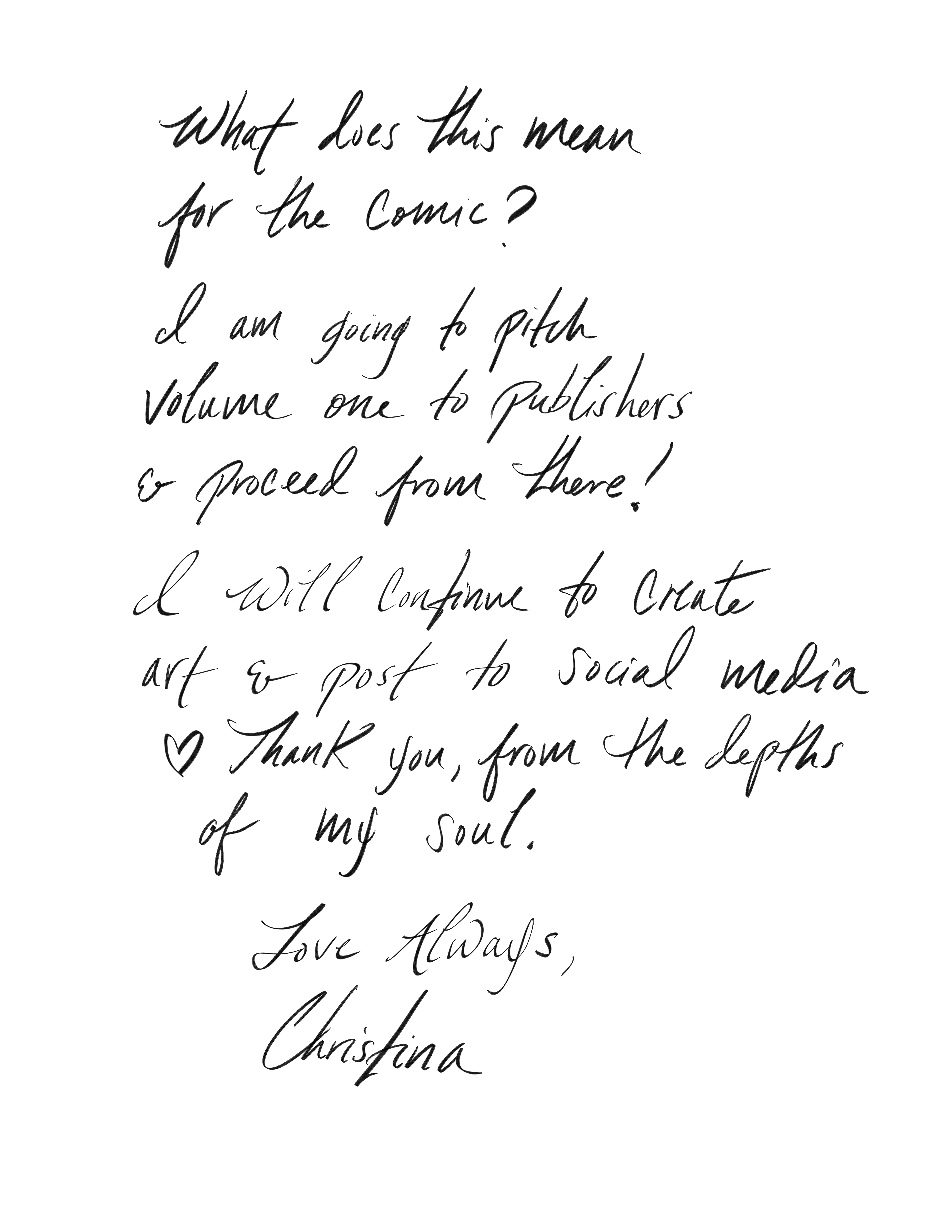 What does this mean
for the comic?
I am going to pitch
volume one to publishers
& proceed from there!
I will continue to create
art & post to social media
♡ Thank you, from the depths
of my soul.
Love Always,
Christina